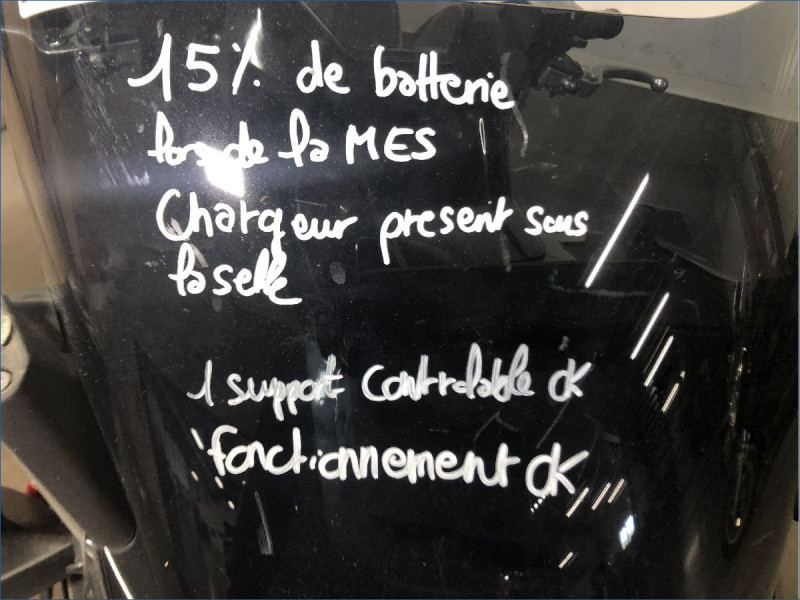 15% de batterie
lors de la MES
Chargeur present sous
la selle
1 support Controlable OK
fonctionnement OK